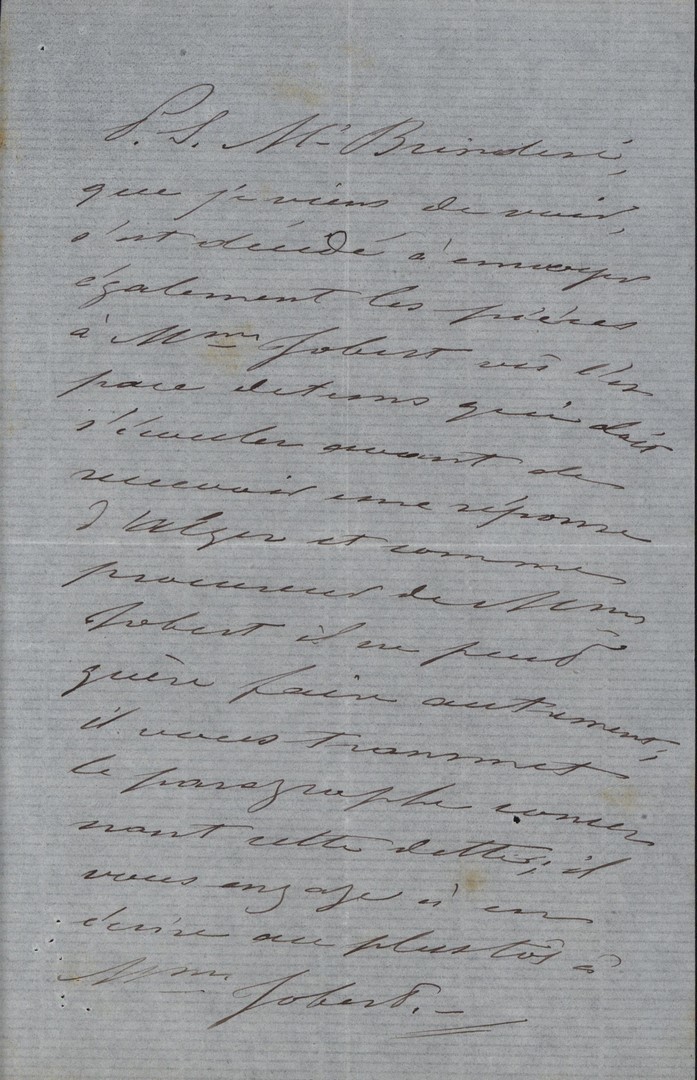 P.S. Mr Brinderé,
que je viens de voir,
s'est décidé à envoyer
également les pièces
à Mme Jobert vû l'es
pace de tems qui doit
s'écouler avant de
recevoir une réponse
d'Alger et comme
procureur de Mme
Jobert il ne peut
guère faire autrement;
il vous transmet
le paragraphe concer
nant cette dette; il
vous engage à en
écrire au plustôt à
Mme Jobert. –